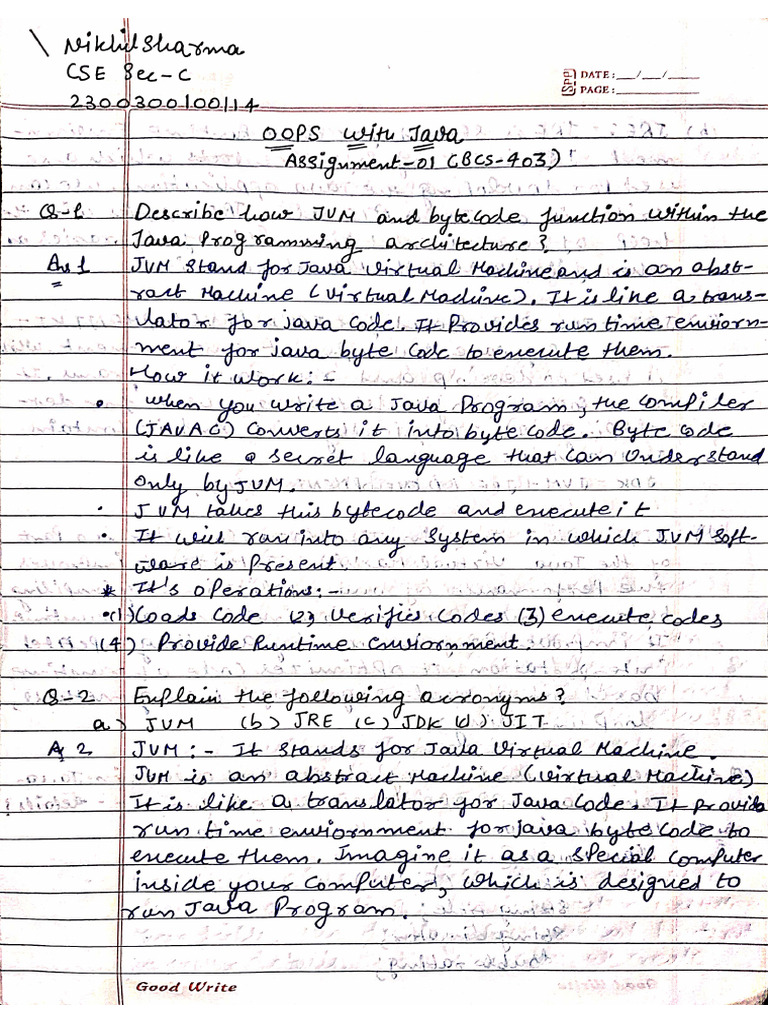 Nikhil Sharma
CSE Sec-C
2300300100114
SPP DATE:__/__/____
PAGE:
OOPS with Java
Assignment-01 (BCS-403)
Q-1 Describe how JVM and bytecode function within the
Java Programming architecture?
Ans 1 JVM Stand for Java Virtual Machine and is an abst-
ract Machine (Virtual Machine). It is like a trans-
lator for java code. It Provides run time enviorn-
ment for java byte Code to execute them.
How it work:-
• when you write a Java Program, the compiler
(JAVAC) converts it into byte code. Byte code
is like a secret language that can understand
only by JVM.
• JVM takes this bytecode and execute it
• It will run into any System in which JVM Soft-
ware is Present
* It's operations:-
•(1) Loads Code (2) Verifies Codes (3) execute codes
(4) Provide Runtime Enviornment.
Q-2 Explain the following acronyms?
a) JVM (b) JRE (c) JDK d) JIT
A 2 JVM:- It stands for Java Virtual Machine.
JVM is an abstract Machine (Virtual Machine)
It is like a translator for Java Code. It Provide
run time enviornment for java byte Code to
execute them. Imagine it as a special computer
inside your computer, which is designed to
run Java Program.
Good Write